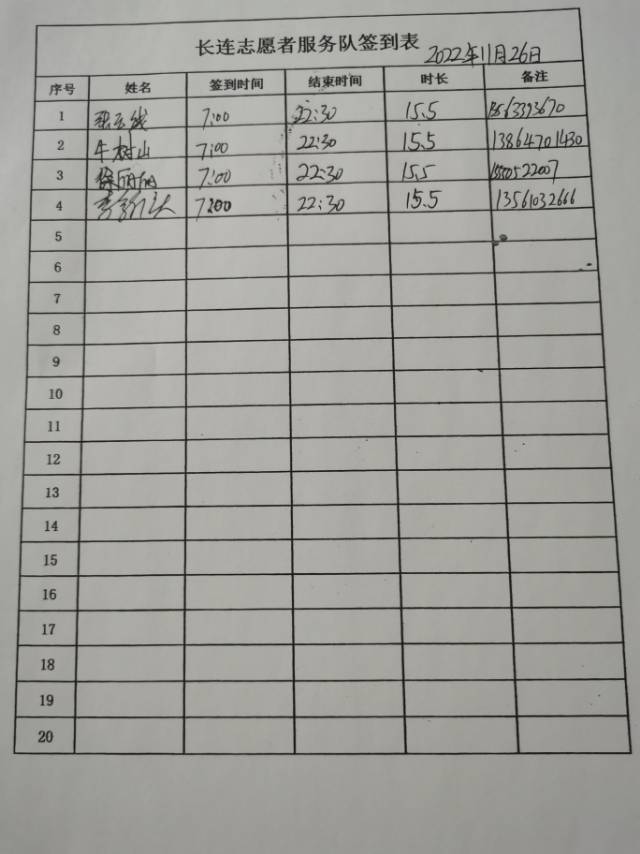 长连志愿者服务队签到表
2022年11月26日
序号 姓名 签到时间 结束时间 时长 备注
1 7:00 22:30 15.5
2 牛树山 7:00 22:30 15.5 13864701430
3 丽丽 7:00 22:30 15.5
4 7:00 22:30 15.5 13561032666
5
6
7
8
9
10
11
12
13
14
15
16
17
18
19
20